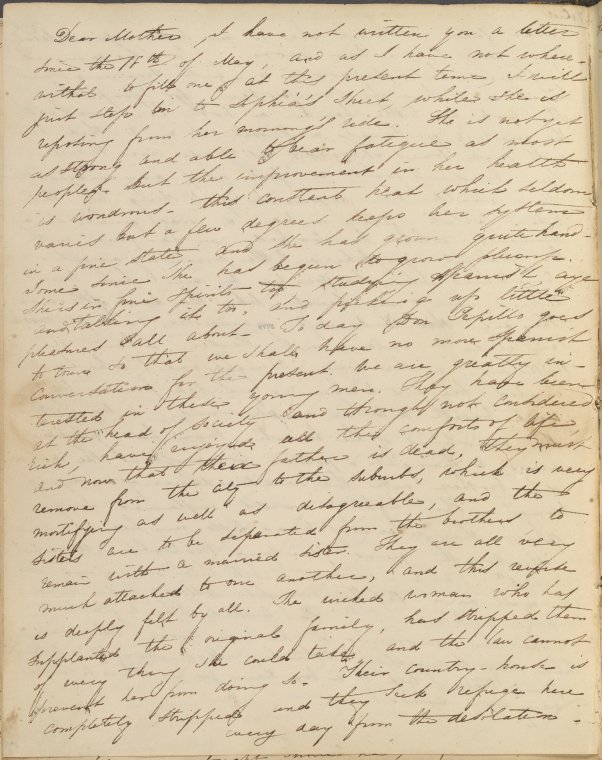 Dear Mother, I have not written you a letter
since the 18th of May, and as I have not where-
withal to fill one, at this present time, I will
just step in to Sophia's sheet, while she is
reposing from her morning's ride. She is not yet
as strong and able to bear fatigue as most
people, but the improvement in her health
is wondrous - this constant heat which seldom
varies but a few degrees keeps her system
in a fine state, and she has grown quite hand-
some since she has begun to grow plump.
She is in fine spirits studying Spanish aye
and talking it too, and picking up little
pleasures all about. To day Don Pepillo goes
to town so that we shall have no more Spanish
conversation for the present. We are greatly in-
terested in these young men. They have been
at the head of society and though not considered
rich, have enjoyed all the comforts of life,
and now that their father is dead, they must
remove from the city to the suburbs, which is very
mortifying as well as disagreeable, and the
sisters are to be separated from the brothers to
remain with a married sister. They are all very
much attached to one another, and this reverse
is deeply felt by all. The wicked woman who has
supplanted the original family, has stripped them
of every thing she could take, and the law cannot
prevent her from doing so. Their country-house is
completely stripped and they seek refuge here
every day from the desolation -
NYPL